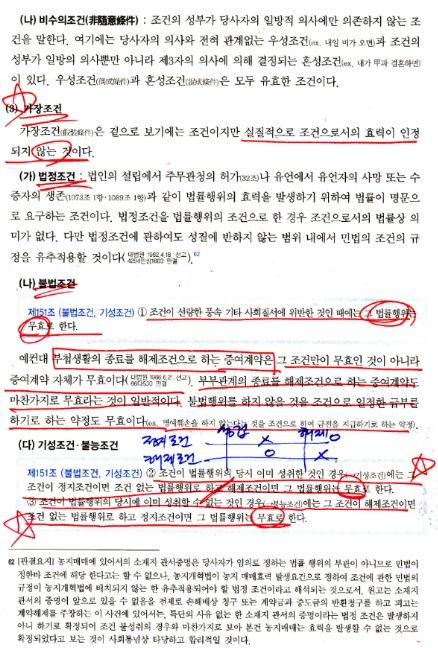 (나) 비수의조건(非隨意條件) : 조건의 성부가 당사자의 일방적 의사에만 의존하지 않는 조
건을 말한다. 여기에는 당사자의 의사와 전혀 관계없는 우성조건(ex. 내일 비가 오면)과 조건의
성부가 일방의 의사뿐만 아니라 제3자의 의사에 의해 결정되는 혼성조건(ex. 내가 甲과 결혼하면)
이 있다. 우성조건(偶成條件)과 혼성조건(混成條件)은 모두 유효한 조건이다.
(3) 가장조건
가장조건(假裝條件)은 겉으로 보기에는 조건이지만 실질적으로 조건으로서의 효력이 인정
되지 않는 것이다.
(가) 법정조건 : 법인의 설립에서 주무관청의 허가(32조)나 유언에서 유언자의 사망 또는 수
증자의 생존(1073조 1항·1089조 1항)과 같이 법률행위의 효력을 발생하기 위하여 법률이 명문으
로 요구하는 조건이다. 법정조건을 법률행위의 조건으로 한 경우 조건으로서의 법률상 의
미가 없다. 다만 법정조건에 관하여도 성질에 반하지 않는 범위 내에서 민법의 조건의 규
정을 유추적용할 것이다(대법원 1962.4.18. 선고 4294민상1603 판결).62
(나) 불법조건
제151조 (불법조건, 기성조건) ① 조건이 선량한 풍속 기타 사회질서에 위반한 것인 때에는 그 법률행위는
무효로 한다.
예컨대 부첩생활의 종료를 해제조건으로 하는 증여계약은 그 조건만이 무효인 것이 아니라
증여계약 자체가 무효이다(대법원 1966.6.21. 선고 66다530 판결). 부부관계의 종료를 해제조건으로 하는 증여계약도
마찬가지로 무효라는 것이 일반적이다. 불법행위를 하지 않을 것을 조건으로 일정한 급부를
하기로 하는 약정도 무효이다(ex. 명예훼손을 하지 않는다는 것을 조건으로 하여 금전을 지급하기로 하는 약정).
(다) 기성조건·불능조건
성립 해제
정지조건 X O
O X
제151조 (불법조건, 기성조건) ② 조건이 법률행위의 당시 이미 성취한 것인 경우(기성조건)에는 그
조건이 정지조건이면 조건 없는 법률행위로 하고 해제조건이면 그 법률행위는 무효로 한다.
③ 조건이 법률행위의 당시에 이미 성취할 수 없는 것인 경우(불능조건)에는 그 조건이 해제조건이면
조건 없는 법률행위로 하고 정지조건이면 그 법률행위는 무효로 한다.
62 [판결요지] 농지매매에 있어서의 소재지 관서증명은 당사자가 임의로 정하는 법률 행위의 부관이 아니므로 민법이
정한바 조건에 해당 한다고는 할 수 없으나, 농지개혁법이 농지 매매효력 발생요건으로 정하여 조건에 관한 민법의
규정이 농지개혁법에 배치되지 않는 한 유추적용되어야 할 법정 조건이라고 해석되는 것으로서, 원고는 소재지
관서의 증명이 앞으로 있을 수 없음을 전제로 손해배상 청구 또는 계약금과 중도금의 반환청구를 하고 피고는
계약해제를 주장하는 이 사건에 있어서는, 특단의 사유 없는 한 소재지 관서의 증명이라는 법정 조건은 발생하지
아니 하기로 확정되어 조건 불성취의 경우와 마찬가지로 보아 본건 농지매매는 효력을 발생할 수 없는 것으로
확정되었다고 보는 것이 사회통념상 타당하고 합리적일 것이다.